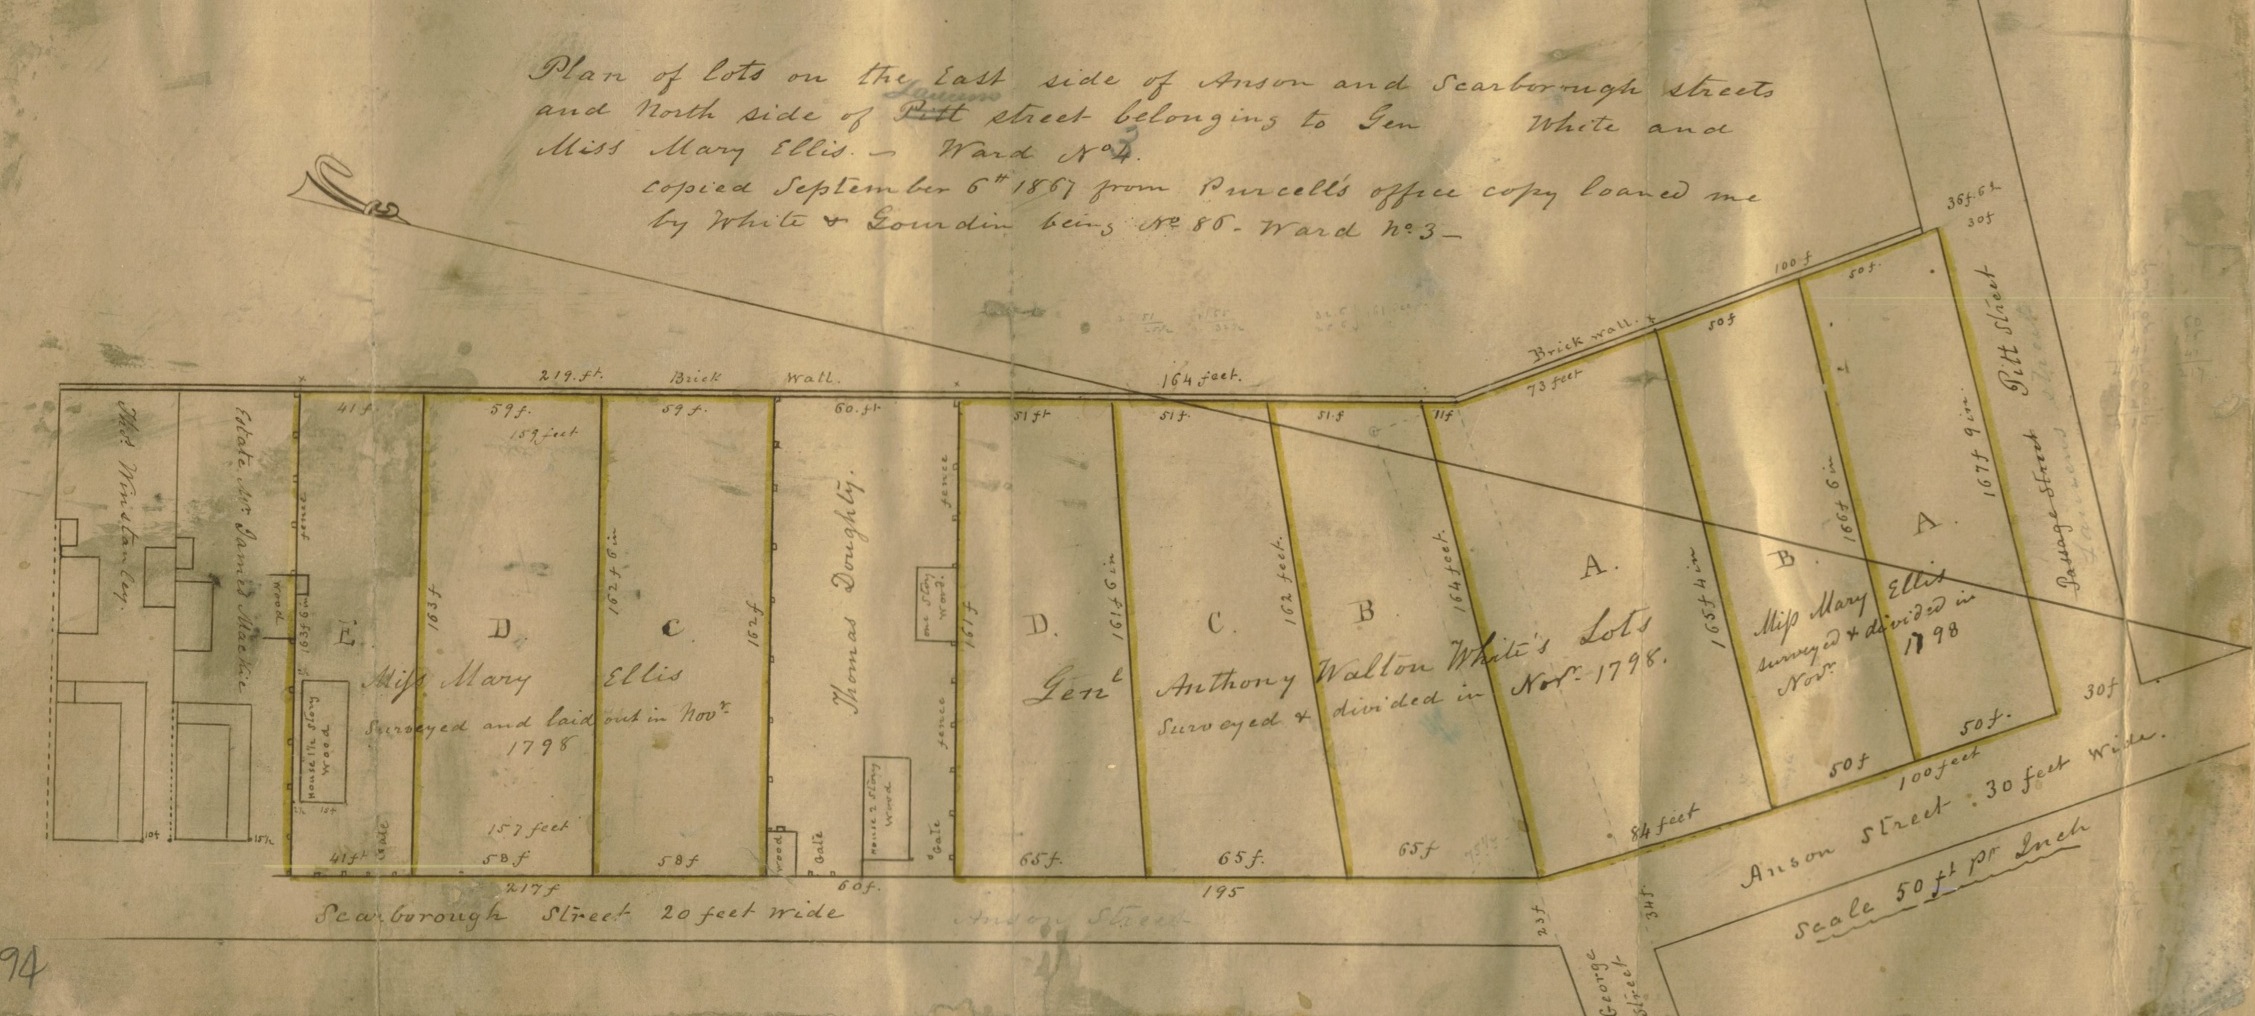 Plan of lots on the East side of Anson and Scarborough streets
Laurens
and North side of Pitt street belonging to Gen White and
3
Miss Mary Ellis. — Ward No 4.
copied September 6th 1867 from Purcell's office copy loaned me
by White & Gourdin being No 86 - Ward No 3 —
36f. 6in
30f
100f
50f.
Brick wall.
50f
73 feet
219. ft.
Brick
Wall.
164 feet.
41f
59f.
59f.
60. ft
51 ft
51f.
51.f
11f
159 feet
Thos. Winstanley.
Estate Mr. James Mackie
fence
Wood
163f 6in
E.
163f
D.
162f 6in
C.
162f
Thomas Doughty.
fence
one Story
Wood.
161f
D.
161f 6in
C.
162 feet.
B
164 feet.
A.
165f 4in
B.
166f 6in
A.
167f 9in.
Pitt Street
Passage Street
Laurens Street
Miss Mary Ellis
Surveyed and laid out in Novr.
1798
Genl Anthony Walton White's Lots
Surveyed & divided in Novr. 1798.
Miss Mary Ellis
surveyed & divided in
Novr. 1798
House 1½ Story
Wood
15f
10f
Gate
157 feet
41ft
58f
58f
217f
Wood
Gate
House 2 Story
Wood
fence
Gate
60f.
65f.
65f.
65f
195
84 feet
50f
50f.
100 feet
30f
Scarborough Street 20 feet wide
Anson Street
Anson Street . 30 feet wide.
Scale 50 ft Pr Inch
23f
34f.
George
Street
94